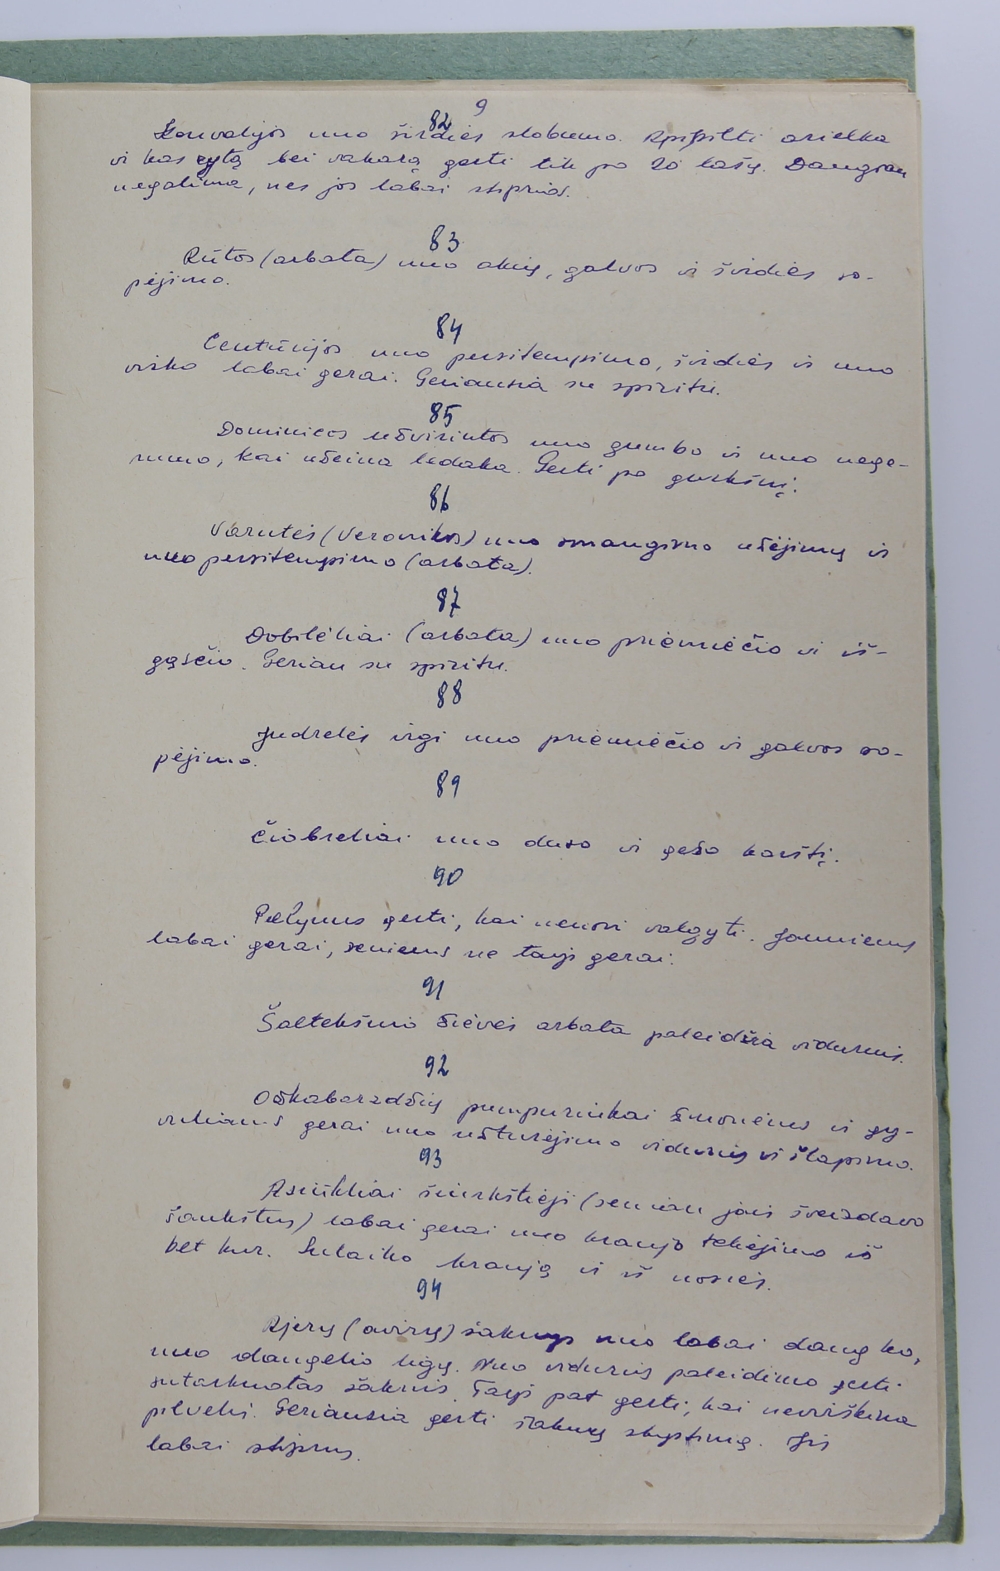 9
82
Konvalijos nuo širdies slobumo. Apipilti arielka
ir kas rytą bei vakarą gerti tik po 20 lašų. Daugiau
negalima, nes jos labai stiprios.
83
Rūtos (arbata) nuo akių, galvos ir širdies so-
pėjimo.
84
Centūrijos nuo persitempimo, širdies ir nuo
visko labai gerai. Geriausia su spiritu.
85
Dominicos užvirintos nuo gumbo ir nuo nege-
rumo, kai užeina ledaka. Gerti po gurkšnį.
86
Varutės (Veronikos) nuo smaugimo užėjimų ir
nuo persitempimo (arbata).
87
Dobilėliai (arbata) nuo priemiečio ir iš-
gąsčio. Geriau su spiritu.
88
Judrelės irgi nuo priemiečio ir galvos so-
pėjimo.
89
Čiobreliai nuo duso ir gešo karštį.
90
Pelynus gerti, kai nenori valgyti. Jauniems
labai gerai, seniems ne taip gerai.
91
Šaltekšnio žievės arbata paleidžia vidurius.
92
Ožkabarzdžių pumpurinkai žmonėms ir gy-
vuliams gerai nuo užturėjimo vidurių ir šlapimo.
93
Asiūkliai šiurkštieji (seniau jais šveisdavo
šaukštus) labai gerai nuo kraujo tekėjimo iš
bet kur. Sulaiko kraują ir iš nosies.
94
Ajerų (avirų) šaknys nuo labai daug ko,
nuo daugelio ligų. Nuo vidurių paleidimo gerti
sutarkuotas šaknis. Taip pat gerti, kai nevirškina
pilvelis. Geriausia gerti šaknų skystimą. Jis
labai stiprus.